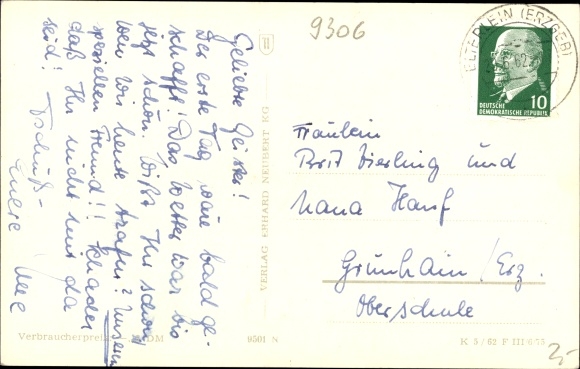 9306
ELTERLEIN (ERZGEB)
62
DEUTSCHE
DEMOKRATISCHE REPUBLIK
10
Geliebte Geister!
Der erste Tag wäre bald ge-
schafft! Das Wetter war bis
jetzt schön. Wißt Ihr schon
wen wir heute trafen? Unseren
speziellen Freund!! Schade
daß Ihr nicht mit da
seid! Tschüß -
Eure
VERLAG ERHARD NEUBERT KG
Fräulein
Brit Vierling und
Nana Hanf
Grünhain/Erz.
Oberschule
Verbraucherpreis MDM
9501 N
K 5/62 F III/6/53